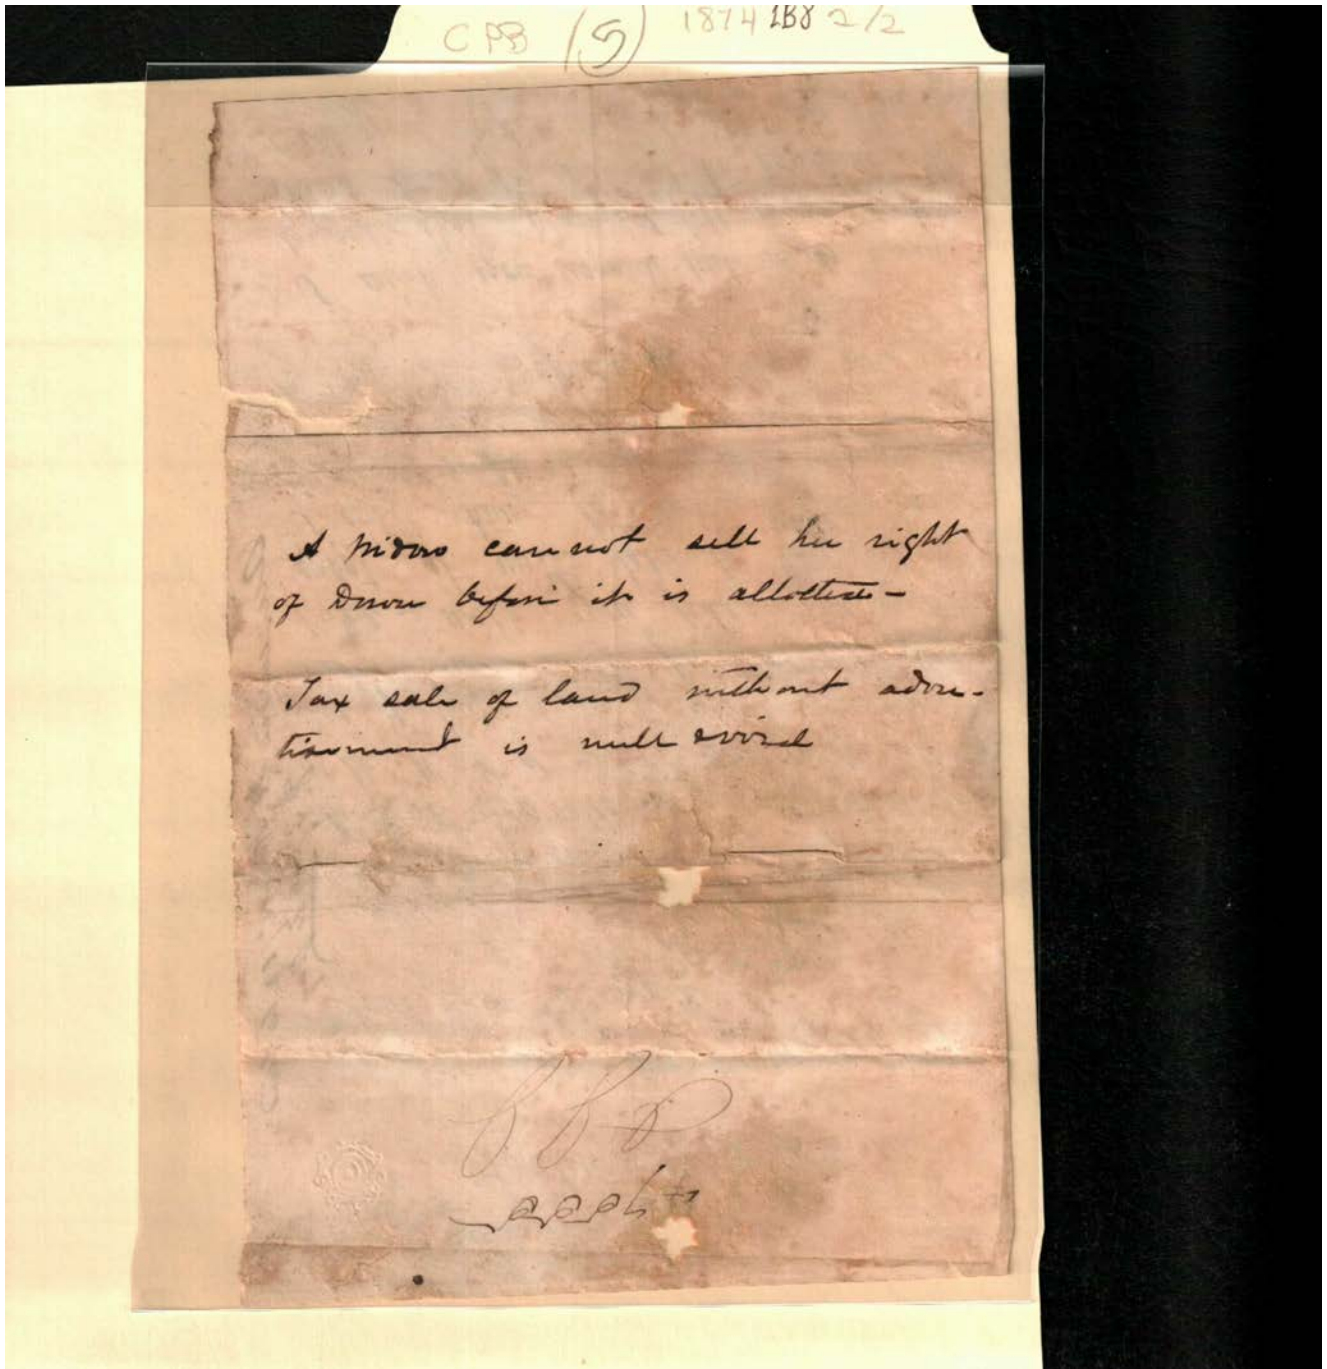 CPB (5) 1874 IB8 2/2
A Widow cannot sell her right
of Dower before it is allotted –
Tax sale of land without adver-
tisement is null & void